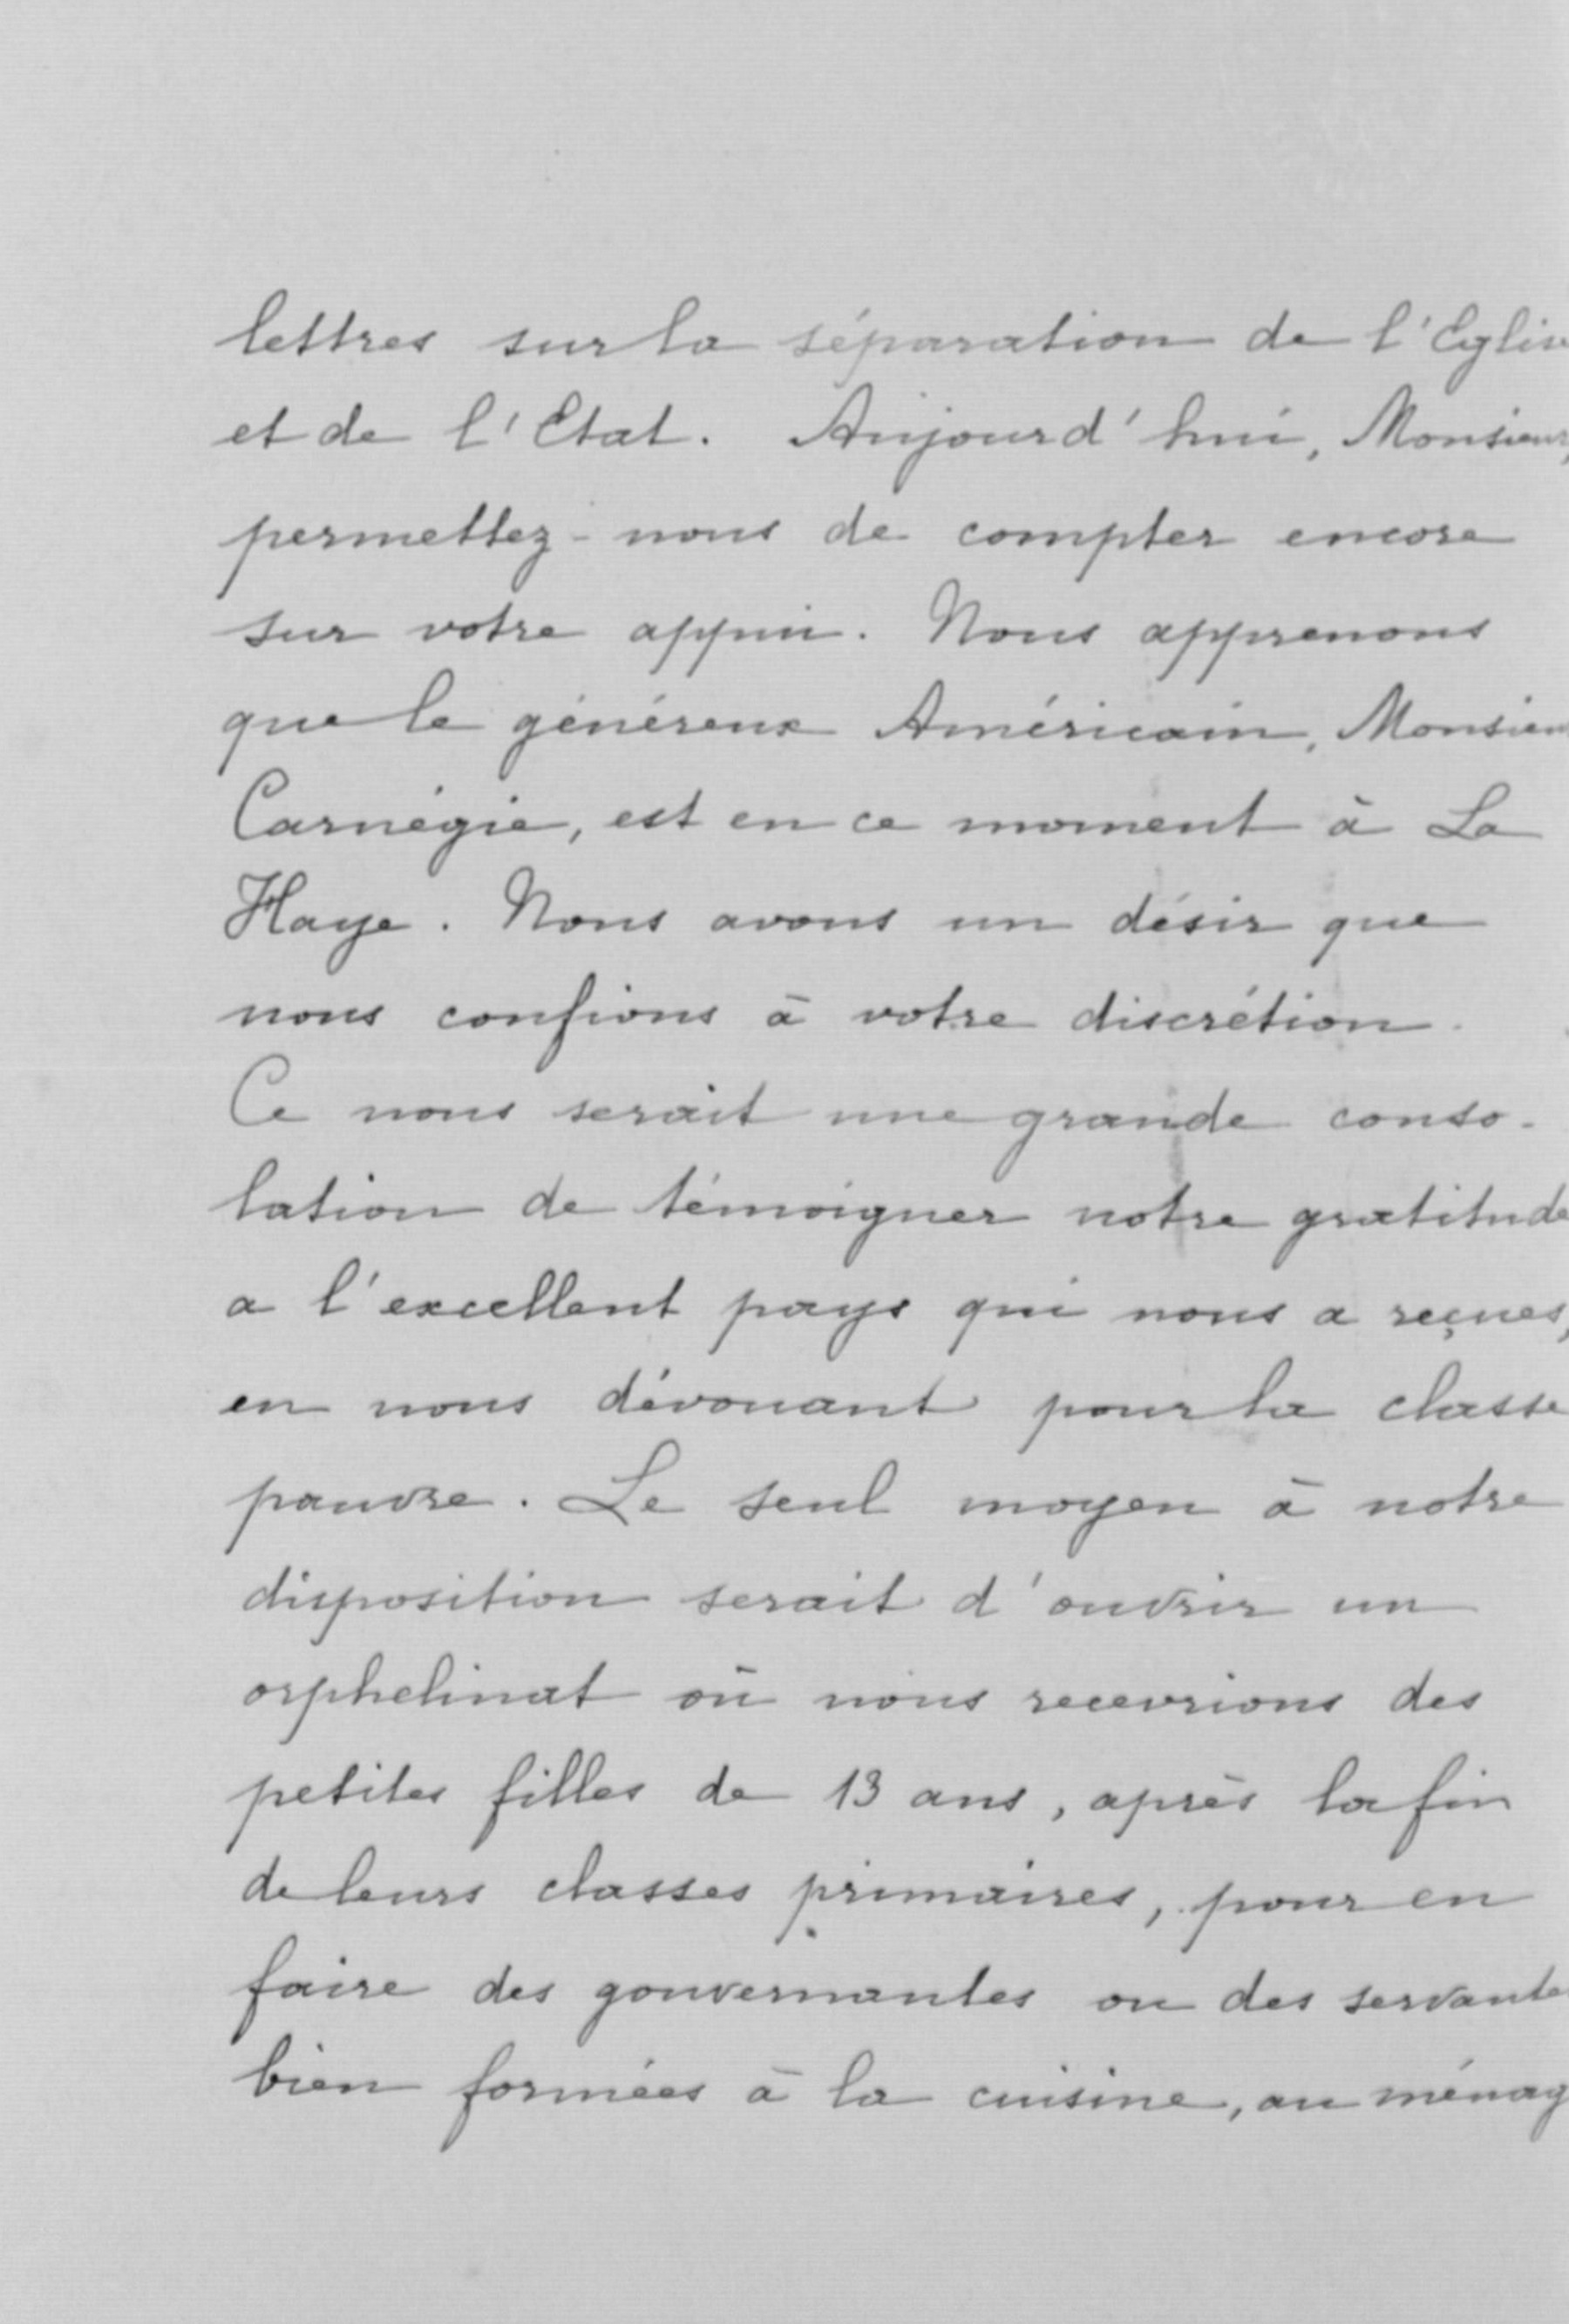 lettres sur la séparation de l'Eglise
et de l'Etat. Aujourd'hui, Monsieur,
permettez-nous de compter encore
sur votre appui. Nous apprenons
que le généreux Américain, Monsieur
Carnégie, est en ce moment à La
Haye. Nous avons un désir que
nous confions à votre discrétion.
Ce nous serait une grande conso-
lation de témoigner notre gratitude
a l'excellent pays qui nous a reçues,
en nous dévouant pour la classe
pauvre. Le seul moyen à notre
disposition serait d'ouvrir un
orphelinat où nous recevrions des
petites filles de 13 ans, après la fin
de leurs classes primaires, pour en
faire des gouvernantes ou des servantes
bien formées à la cuisine, au ménag